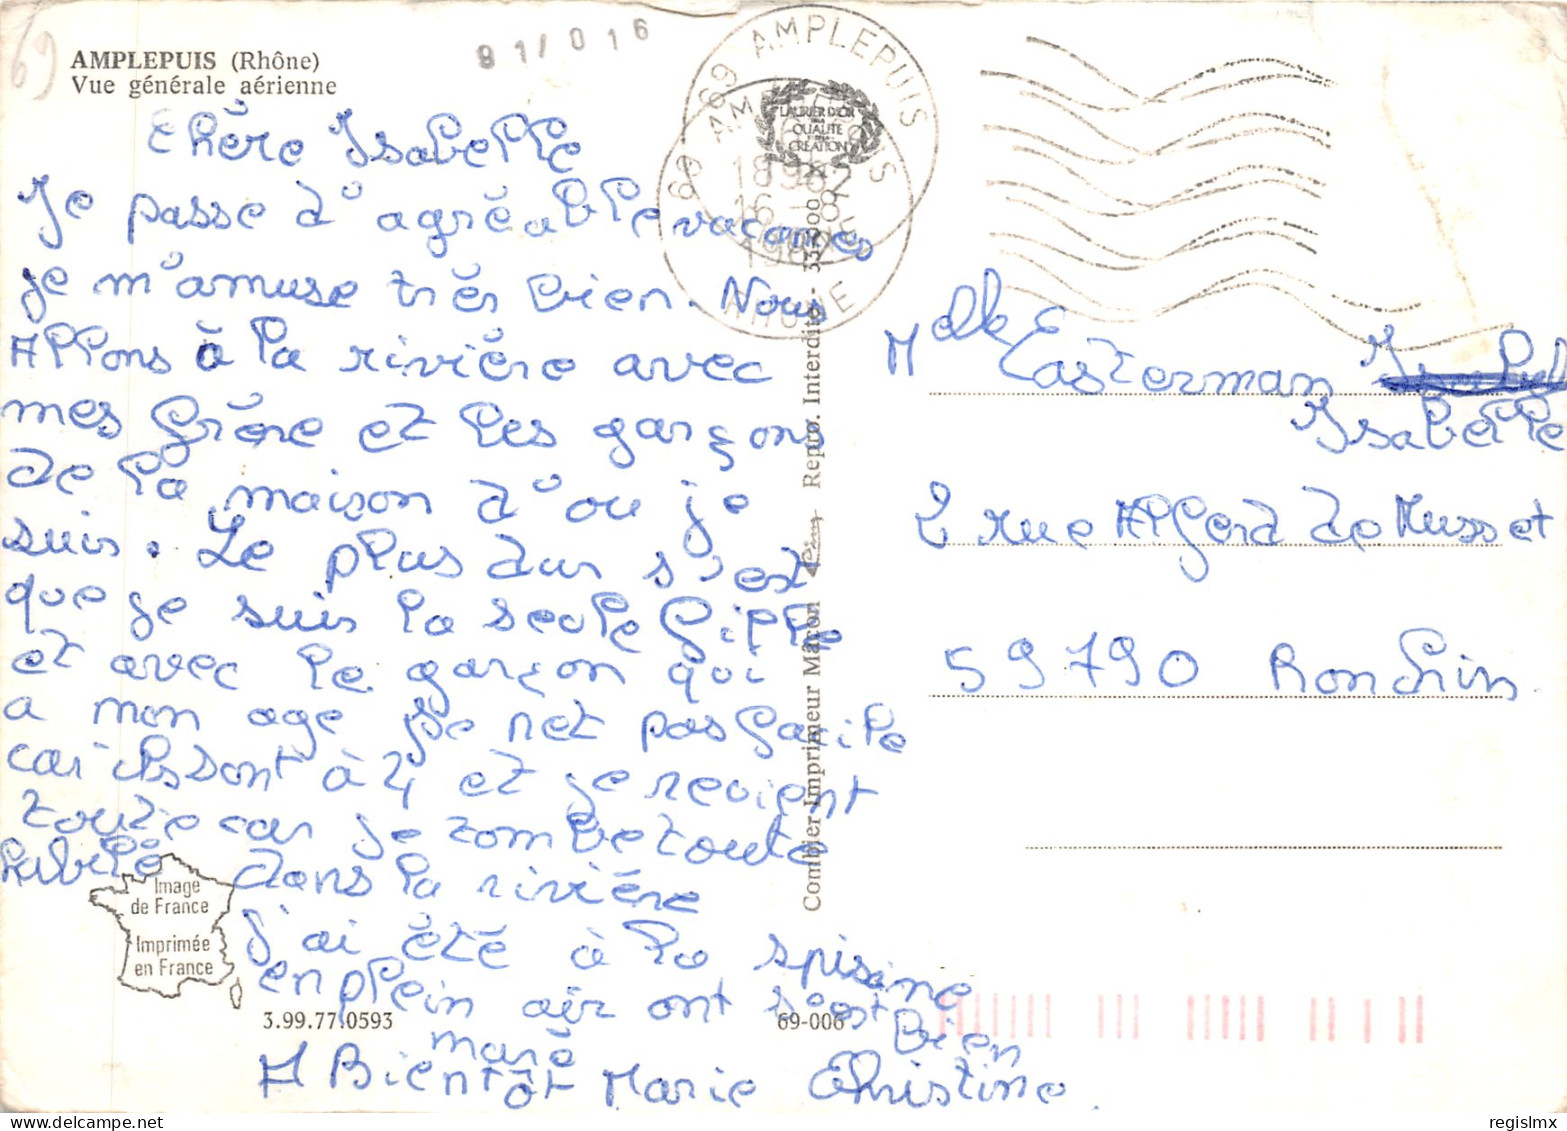 69
AMPLEPUIS (Rhône)
Vue générale aérienne
91/016
69 AMPLEPUIS
69 AMPLEPUIS
1982
16-8
1982
RHONE
LAURIER D'OR
QUALITE
CREATION
Chère Isabelle
Je passe d'agréable vacances
je m'amuse très bien. Nous
Allons à la rivière avec
mes frère et les garçons
de la maison d'ou je
suis. Le plus dur s'est
que je suis la seule fille
et avec le garçon qui
a mon age se net pas facile
car ils sont à 4 et je revient
toute car je tombe toute
habilé dans la rivière
j'ai été à la spisine
en plein air ont s'est bien
maré
A Bientôt Marie Christine.
Image
de France
Imprimée
en France
3.99.77.0593
69-006
Combier Imprimeur Macon Repro. Interdite
Mdlle Easterman
Isabelle
2 rue Alferd de Musset
59790 Ronchin
regislmx
delcampe.net